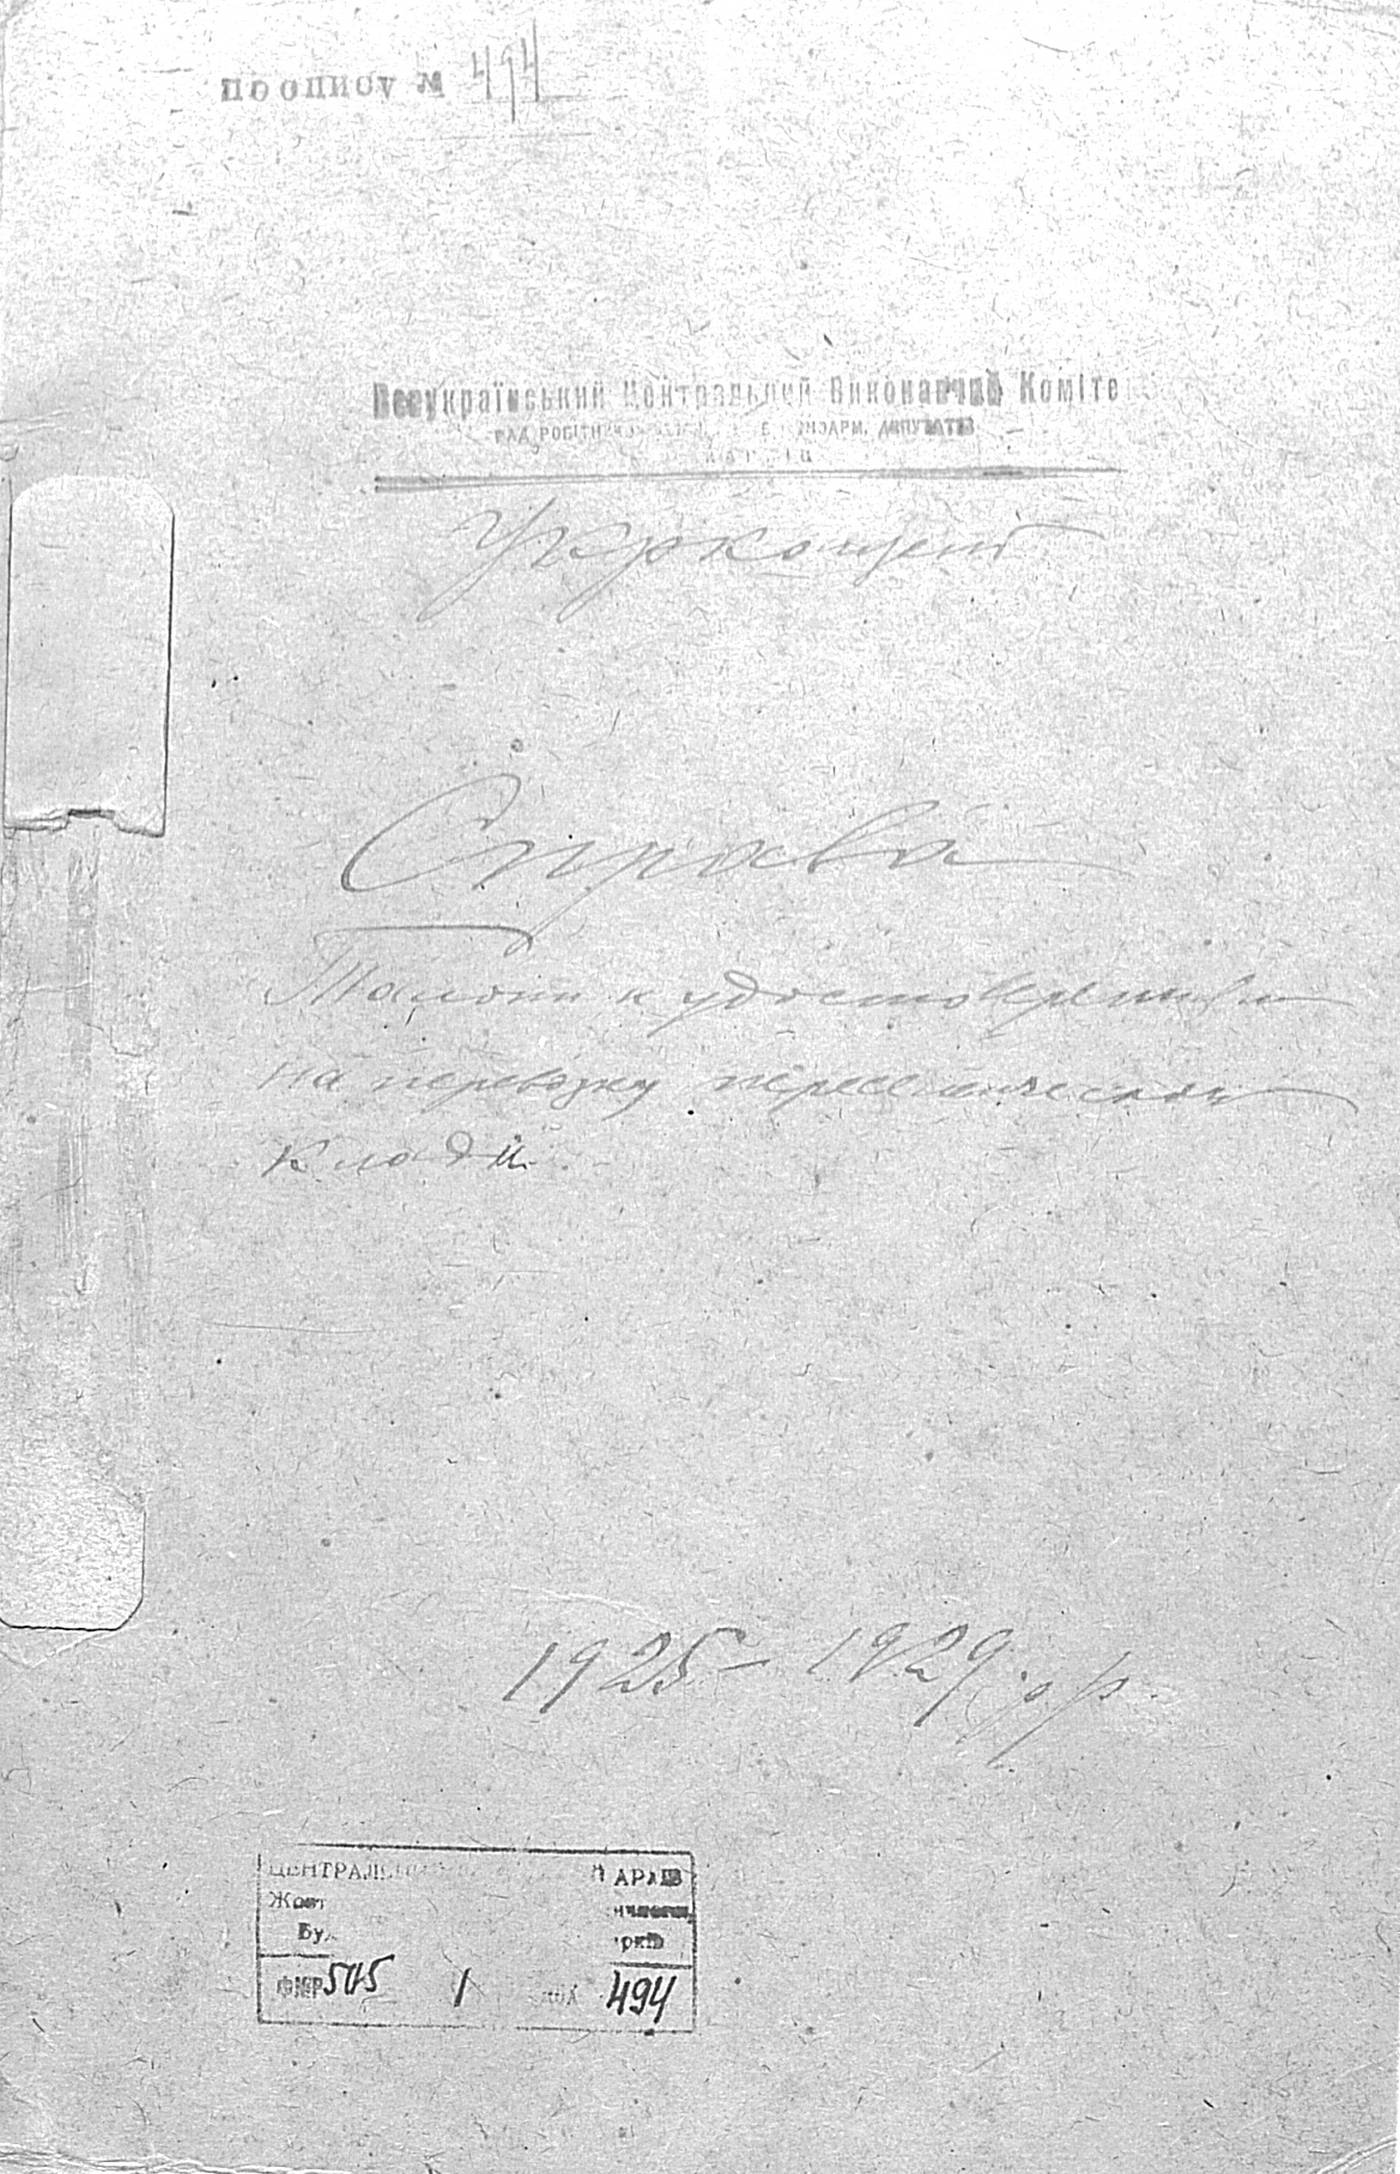 По опису № 494
Всеукраїнський Центральний Виконавчий Коміте
РАД РОБІТНИЧ ДЕПУТАТІВ
Справа
Талоны к удостоверениям
на перевозку переселенческой
клади
1925 - 1929 р р.
ЦЕНТРАЛЬН АРХІВ
Жовт
Бу
ФМР 505 1 494